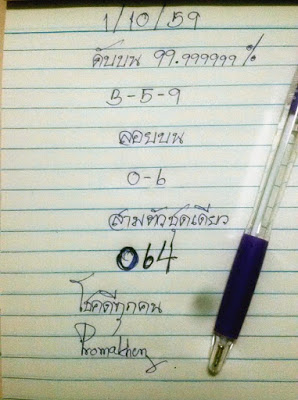 1/10/59
ดับบน 99.999999%
3-5-9
ลอยบน
0-6
สามตัวชุดเดียว
064
โชคดีทุกคน
Promakhen